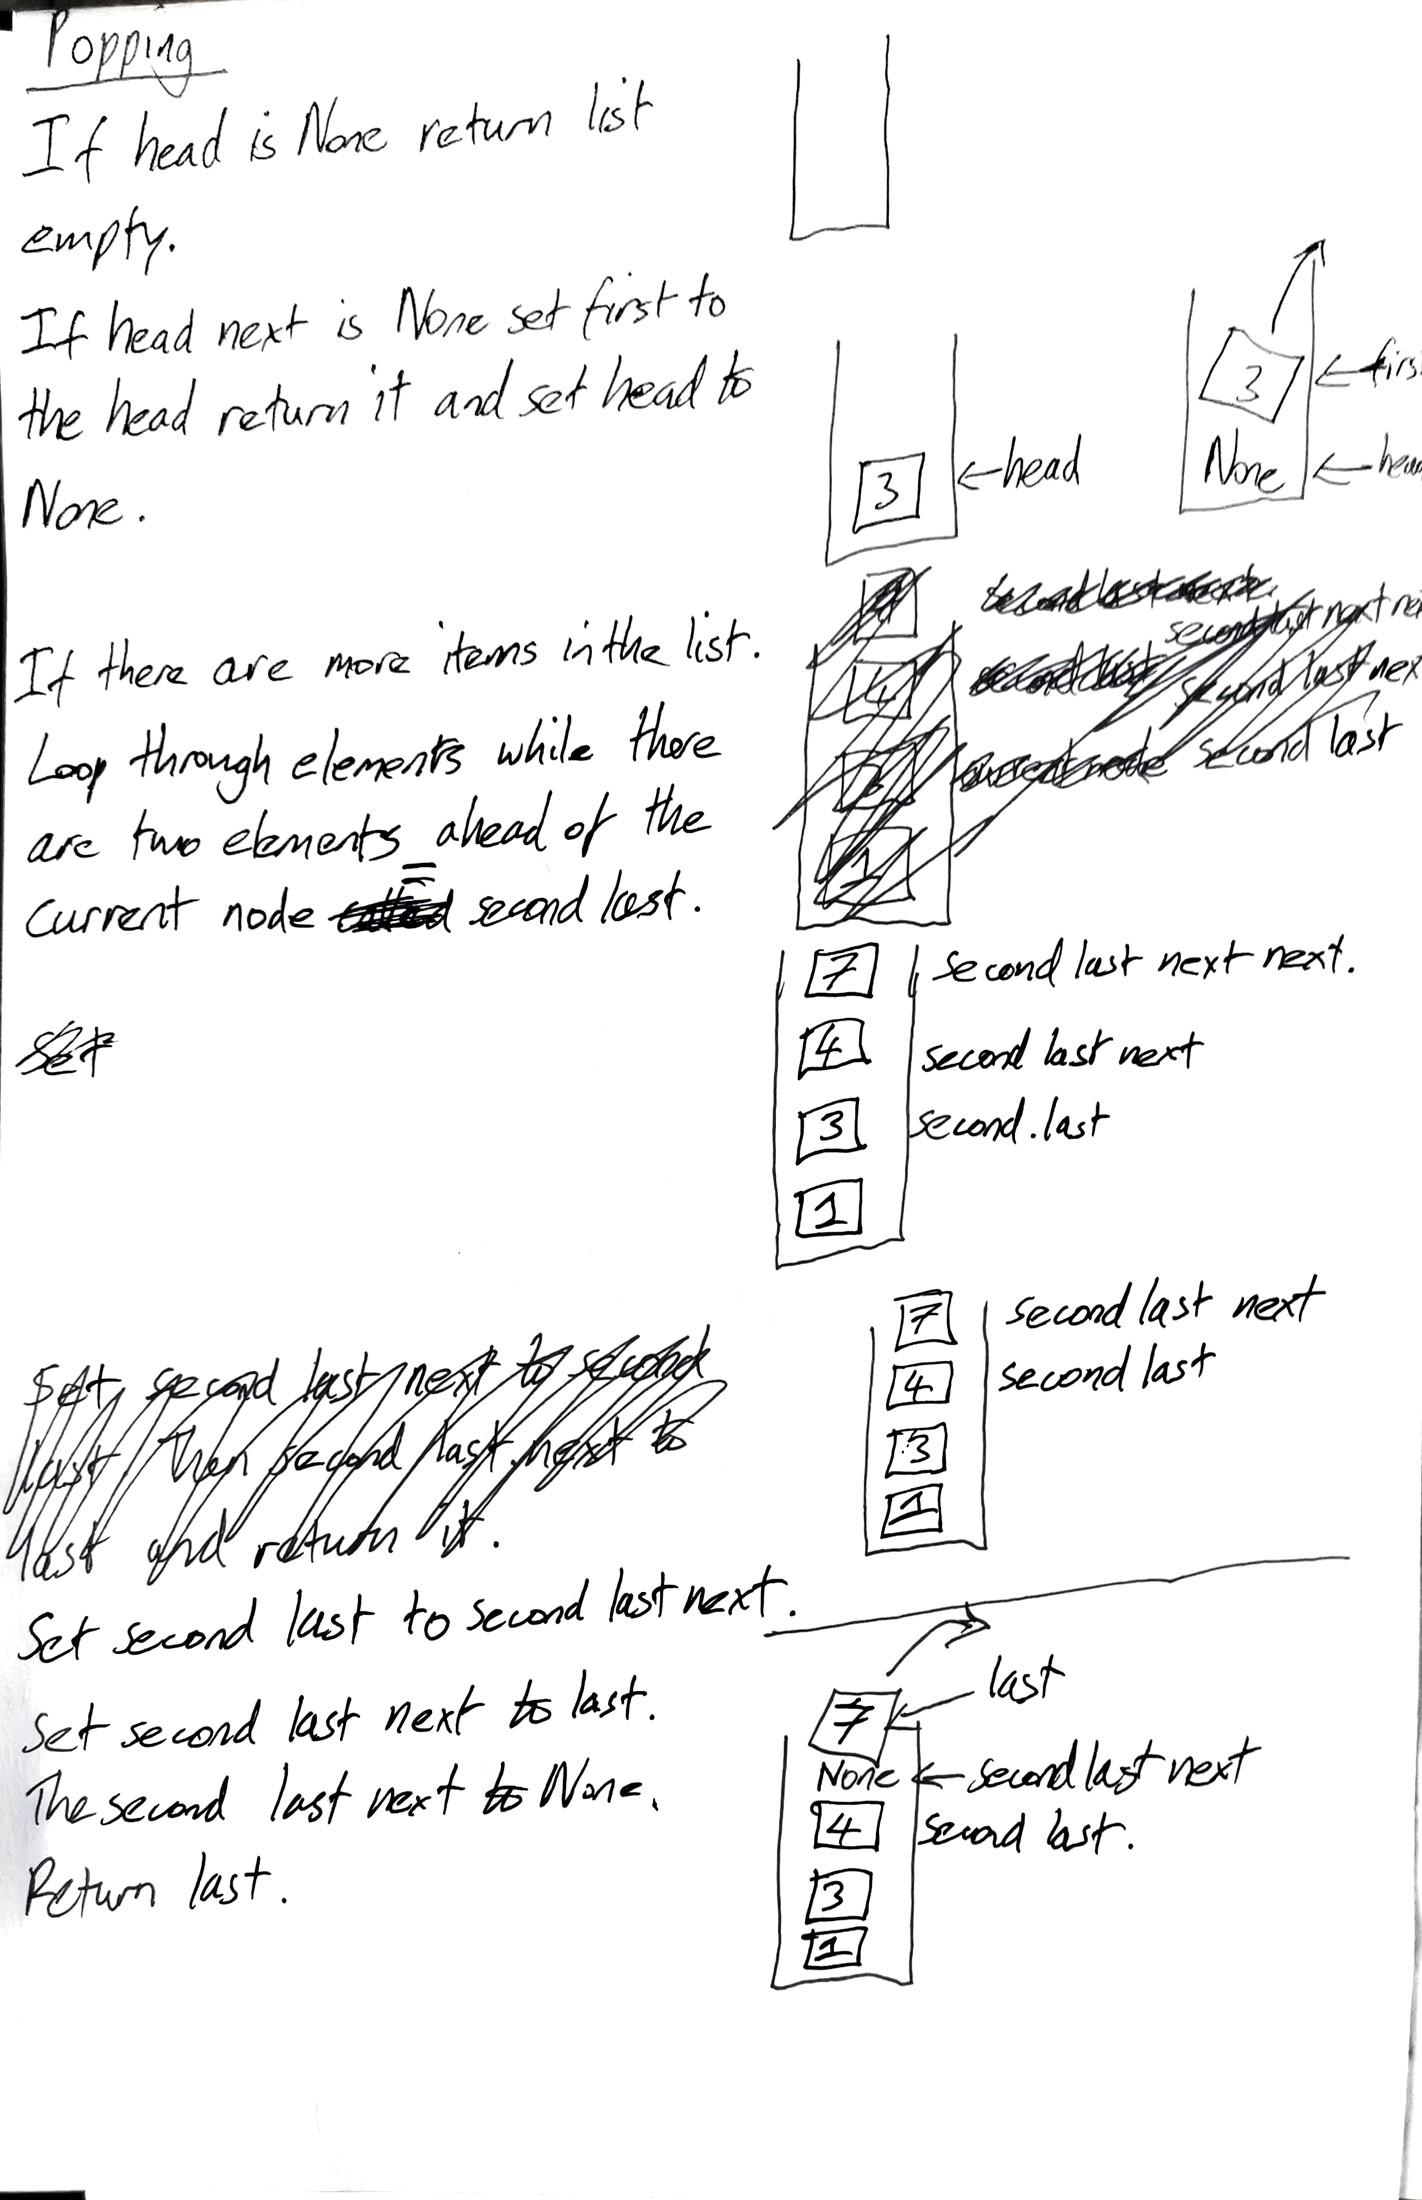 Popping
If head is None return list
empty.
If head next is None set first to
the head return it and set head to
None.
3
← head
3
None
If there are more items in the list.
Loop through elements while there
are two elements = ahead of the
current node second last.
second last next
second last
7 second last next next.
4 second last next
3 second.last
1
Set
7 second last next
4 second last
3
1
Set second last next to second
last, then second last next to
last and return it.
Set second last to second last next.
Set second last next to last.
The second last next to None.
Return last.
last
7
None ← second last next
4 second last.
3
1